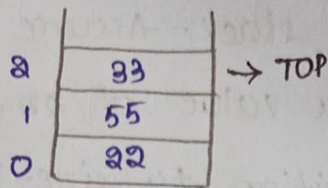 2 33 → TOP
1 55
0 22